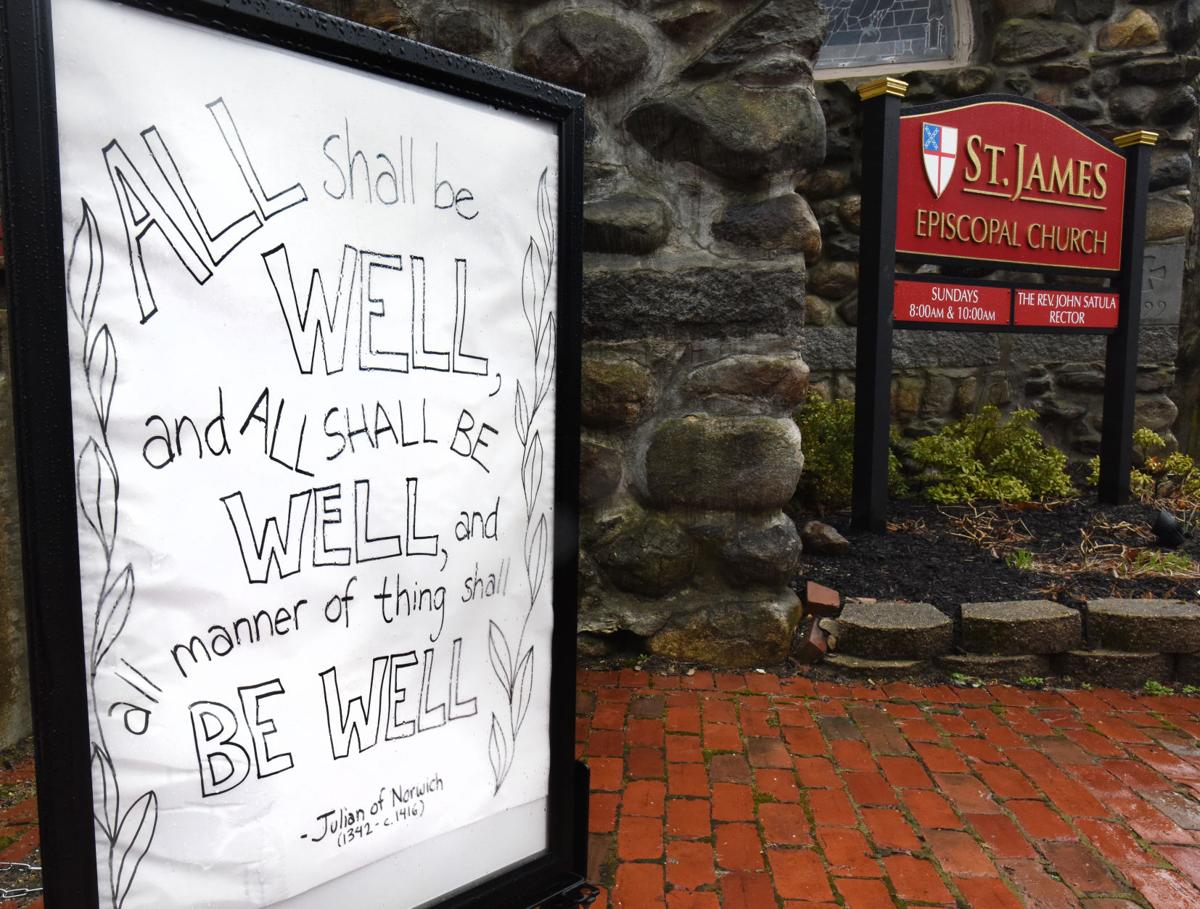 ALL shall be
WELL,
and ALL SHALL BE
WELL, and
all manner of thing shall
BE WELL
- Julian of Norwich
(1342 - c.1416)
ST. JAMES
EPISCOPAL CHURCH
SUNDAYS
8:00AM & 10:00AM
THE REV. JOHN SATULA
RECTOR